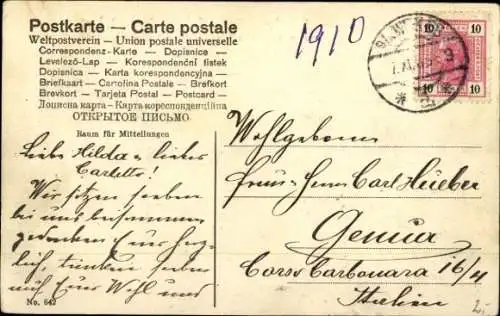 Postkarte — Carte postale
Weltpostverein — Union postale universelle
Correspondenz-Karte — Dopisnice
Levelező-Lap — Korespondenční lístek
Dopisnica — Karta korespondencyjna
Briefkaart — Cartolina Postale — Brefkort
Brevkort — Tarjeta Postal — Postcard —
Лописна карта — Карта кореспонденційна
ОТКРЫТОЕ ПИСЬМО
Raum für Mitteilungen
Liebe Hilda u liebes
Carletto!
Wir sitzen soeben
bei uns beisammen
gedenken Euer herz-
lich, trinken soeben
auf Euer Wohl und
No. 642
1910
10 10
10 10
Wohlgeboren
Frau u Herr Carl Hueber
Genua
Corso Carbonara 16/11
Italien
2.-